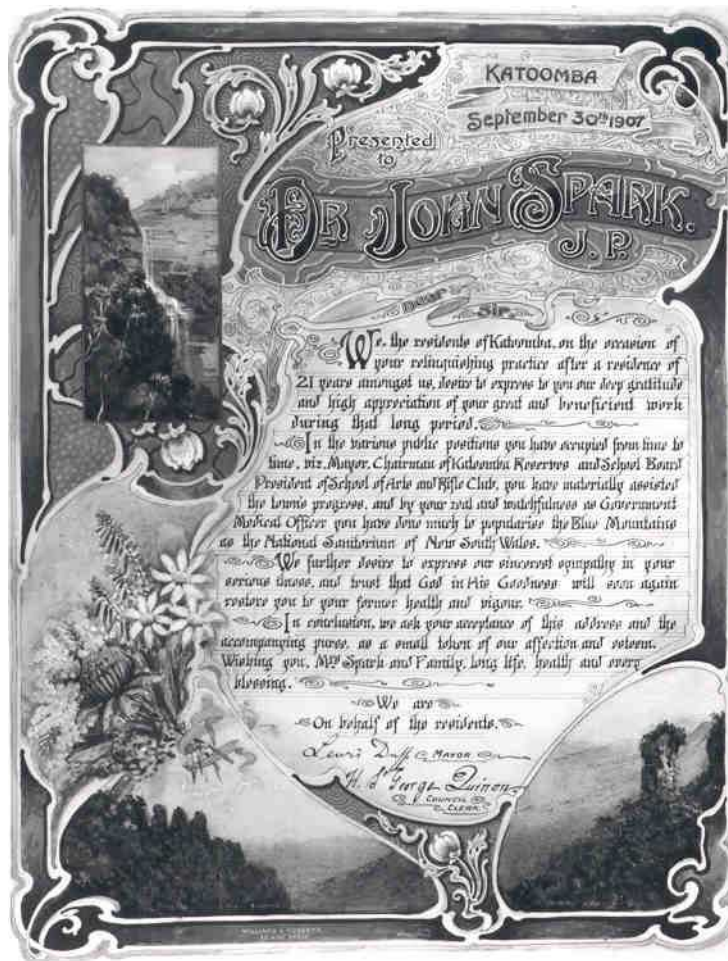 KATOOMBA
September 30th 1907
Presented
to
DR JOHN SPARK.
J. P.
Dear Sir.
We, the residents of Katoomba, on the occasion of
your relinquishing practice after a residence of
21 years amongst us, desire to express to you our deep gratitude
and high appreciation of your great and beneficient work
during that long period.
In the various public positions you have occupied from time to
time, viz. Mayor, Chairman of Katoomba Reserves and School Board
President of School of Arts and Rifle Club, you have materially assisted
the town's progress, and by your zeal and watchfulness as Government
Medical Officer you have done much to popularise the Blue Mountains
as the National Sanitorium of New South Wales.
We further desire to express our sincerest sympathy in your
serious illness, and trust that God in His Goodness will soon again
restore you to your former health and vigour.
In conclusion, we ask your acceptance of this address and the
accompanying purse, as a small token of our affection and esteem.
Wishing you, Mrs Spark and Family, long life, health and every
blessing.
We are
On behalf of the residents.
Lewis Duff MAYOR
H. St George Quinon
COUNCIL
CLERK